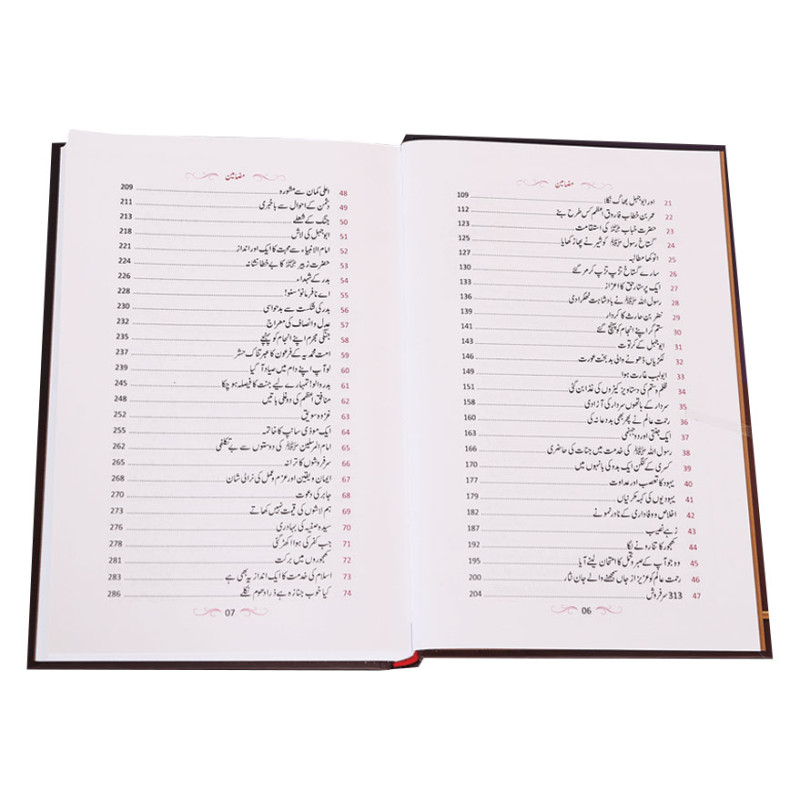 مضامین
21 اور ابو جہل بھاگ نکلا 109
22 عمر بن خطاب فاروق اعظم کس طرح بنے 112
23 حضرت خباب ؓ کی استقامت 123
24 گستاخ رسول ﷺ کو شیر نے پھاڑ کھایا 125
25 انوکھا مطالبہ 127
26 سارے گستاخ تڑپ تڑپ کر مر گئے 130
27 ایک پرستار حق کا اعزاز 133
28 رسول اللہ ﷺ نے بادشاہت ٹھکرا دی 136
29 نضر بن حارث کا کردار 139
30 ستم گر اپنے انجام کو پہنچ گئے 141
31 ابو جہل کے کرتوت 143
32 لکڑیاں ڈھونے والی بد بخت عورت 146
33 ابو لہب غارت ہوا 149
34 ظلم و ستم کی دستاویز کیڑوں کی غذا بن گئی 151
35 سردار کے ہاتھوں سردار کی آزادی 158
36 رحمت عالم نے پھر بھی بددعا نہ کی 160
37 ایک جنتی اور دو جہنمی 163
38 رسول اللہ ﷺ کی خدمت میں جنات کی حاضری 166
39 کسریٰ کے کنگن ایک بدو کی بانہوں میں 170
40 یہود کا تعصب اور عداوت 177
41 یہودیوں کی کہہ مکرنیاں 179
42 اخلاص و وفاداری کے نادر نمونے 181
43 زہے نصیب 187
44 کھجور کا تنا رونے لگا 192
45 وہ جو آپ کے صبر و تحمل کا امتحان لینے آیا 195
46 رحمت عالم کو عزیز از جاں سمجھنے والے جاں نثار 200
47 313 سرفروش 204
06
مضامین
48 اعلیٰ کمان سے مشورہ 209
49 دشمن کے احوال سے باخبری 211
50 جنگ کے شعلے 213
51 ابو جہل کی لاش 218
52 امام الانبیاء سے محبت کا ایک اور انداز 221
53 حضرت زبیر ؓ کا بے خطا نشانہ 224
54 بدر کے شہداء 226
55 اے نافرمانو! سنو! 228
56 بدر کی شکست سے بدحواسی 230
57 عدل و انصاف کی معراج 232
58 جنگی مجرم اپنے انجام کو پہنچے 235
59 امت محمدیہ کے فرعون کا عبرتناک حشر 237
60 لو آپ اپنے دام میں صیاد آ گیا 239
61 بدر والو! تمہارے لیے جنت کا فیصلہ ہو چکا 245
62 منافق اعظم کی دوغلی باتیں 248
63 غزوہ سویق 252
64 ایک موذی سانپ کا خاتمہ 255
65 امام المرسلین ﷺ کی دوستوں سے بے تکلفی 262
66 سرفروشوں کا ترانہ 265
67 ایمان و یقین اور عزم و عمل کی نرالی شان 268
68 جابر کی دعوت 270
69 ہم لاشوں کی قیمت نہیں کھاتے 273
70 سیدہ صفیہ کی بہادری 276
71 جب کفر کی ہوا اکھڑ گئی 278
72 کھجوروں میں برکت 281
73 اسلام کی خدمت کا ایک انداز یہ بھی ہے 283
74 کیا خوب جنازہ ہے ذرا دھوم نکلے 286
07